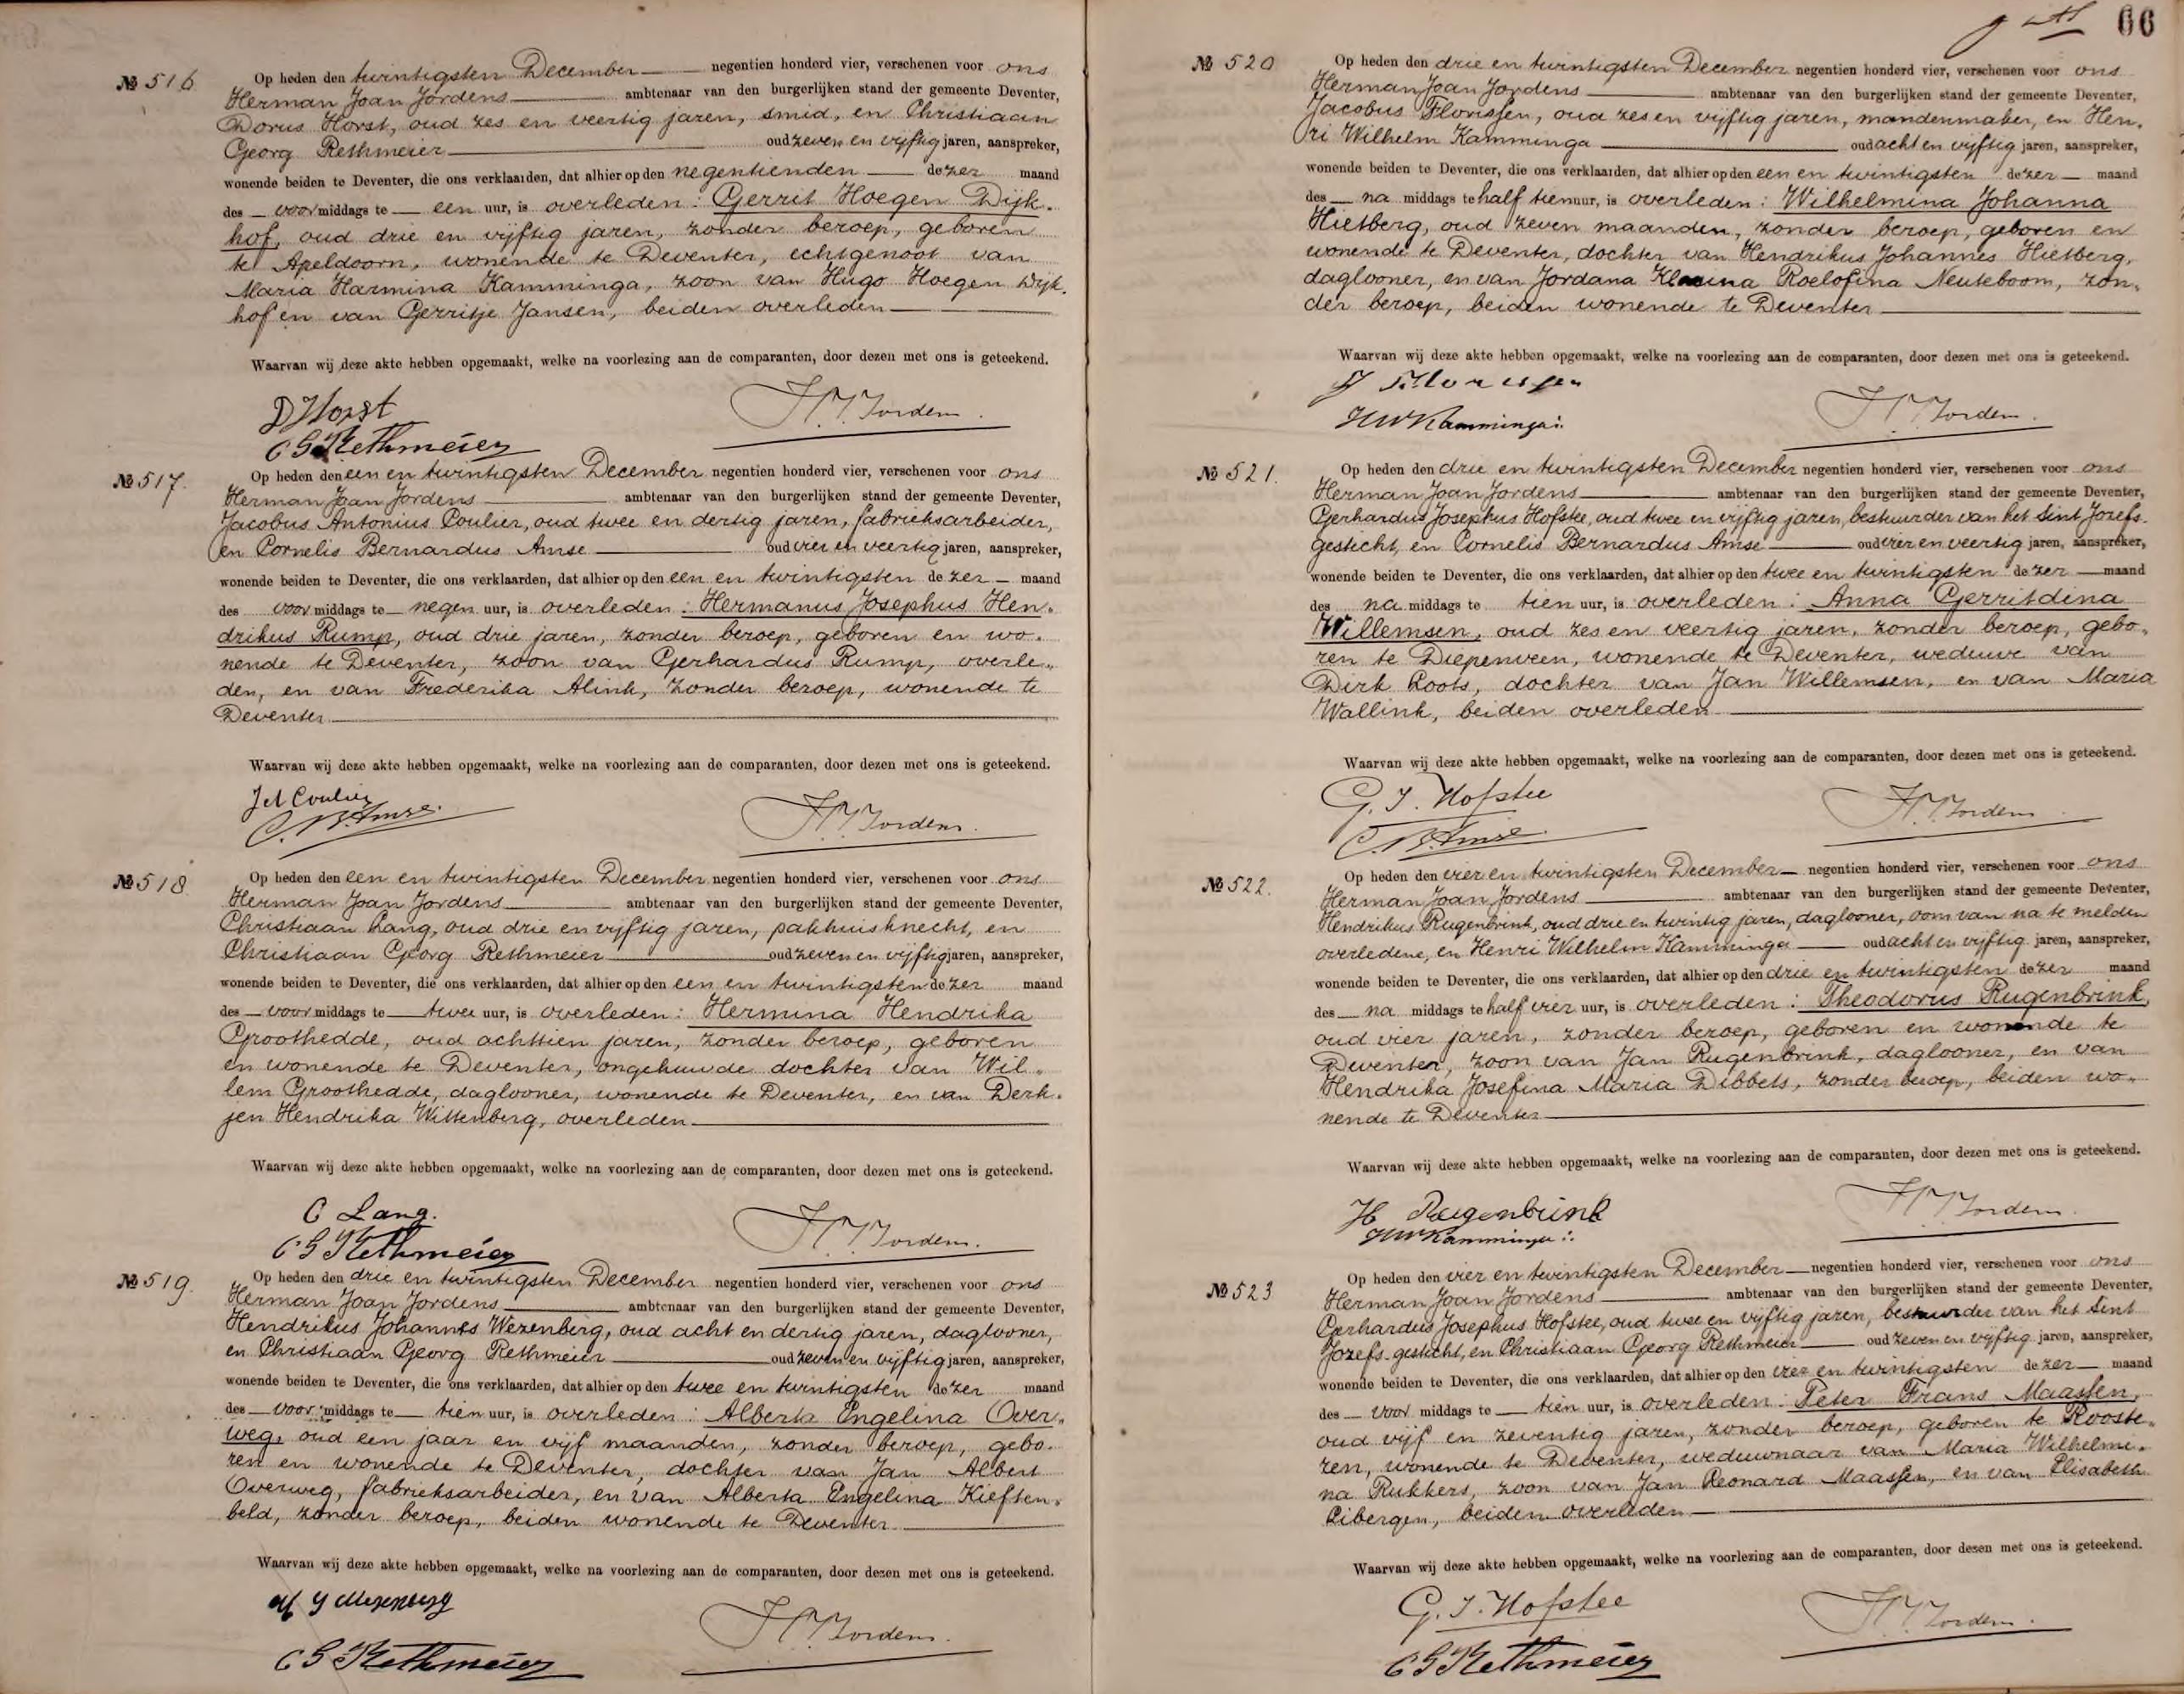 № 516
Op heden den twintigsten December negentien honderd vier, verschenen voor ons
Herman Joan Jordens ambtenaar van den burgerlijken stand der gemeente Deventer,
Dorus Horst, oud zes en veertig jaren, smid, en Christiaan
Georg Rethmeier oud zeven en vijftig jaren, aanspreker,
wonende beiden te Deventer, die ons verklaarden, dat alhier op den negentienden dezer maand
des voormiddags te een uur, is overleden: Gerrit Hoegen Dijk-
hof, oud drie en vijftig jaren, zonder beroep, geboren
te Apeldoorn, wonende te Deventer, echtgenoot van
Maria Harmina Kamminga, zoon van Hugo Hoegen Dijk-
hof en van Gerritje Jansen, beiden overleden
Waarvan wij deze akte hebben opgemaakt, welke na voorlezing aan de comparanten, door dezen met ons is geteekend.
D Horst
C G Rethmeier
H.J. Jordens.
№ 517.
Op heden den een en twintigsten December negentien honderd vier, verschenen voor ons
Herman Joan Jordens ambtenaar van den burgerlijken stand der gemeente Deventer,
Jacobus Antonius Coulier, oud twee en dertig jaren, fabrieksarbeider,
en Cornelis Bernardus Amse oud vier en veertig jaren, aanspreker,
wonende beiden te Deventer, die ons verklaarden, dat alhier op den een en twintigsten dezer maand
des voormiddags te negen uur, is overleden: Hermanus Josephus Hen-
drikus Rump, oud drie jaren, zonder beroep, geboren en wo-
nende te Deventer, zoon van Gerhardus Rump, overle-
den, en van Frederika Alink, zonder beroep, wonende te
Deventer
Waarvan wij deze akte hebben opgemaakt, welke na voorlezing aan de comparanten, door dezen met ons is geteekend.
J A Coulier
C. B. Amse.
H.J. Jordens.
№ 518
Op heden den een en twintigsten December negentien honderd vier, verschenen voor ons
Herman Joan Jordens ambtenaar van den burgerlijken stand der gemeente Deventer,
Christiaan Lang, oud drie en vijftig jaren, pakhuisknecht, en
Christiaan Georg Rethmeier oud zeven en vijftig jaren, aanspreker,
wonende beiden te Deventer, die ons verklaarden, dat alhier op den een en twintigsten dezer maand
des voormiddags te twee uur, is overleden: Hermina Hendrika
Groothedde, oud achttien jaren, zonder beroep, geboren
en wonende te Deventer, ongehuwde dochter van Wil-
lem Groothedde, daglooner, wonende te Deventer, en van Derk-
jen Hendrika Wittenberg, overleden
Waarvan wij deze akte hebben opgemaakt, welke na voorlezing aan de comparanten, door dezen met ons is geteekend.
C Lang.
C G Rethmeier
H.J. Jordens.
№ 519.
Op heden den drie en twintigsten December negentien honderd vier, verschenen voor ons
Herman Joan Jordens ambtenaar van den burgerlijken stand der gemeente Deventer,
Hendrikus Johannes Wezenberg, oud acht en dertig jaren, daglooner,
en Christiaan Georg Rethmeier oud zeven en vijftig jaren, aanspreker,
wonende beiden te Deventer, die ons verklaarden, dat alhier op den twee en twintigsten dezer maand
des voormiddags te tien uur, is overleden: Alberta Engelina Over-
weg, oud een jaar en vijf maanden, zonder beroep, gebo-
ren en wonende te Deventer, dochter van Jan Albert
Overweg, fabrieksarbeider, en van Alberta Engelina Kieften-
beld, zonder beroep, beiden wonende te Deventer
Waarvan wij deze akte hebben opgemaakt, welke na voorlezing aan de comparanten, door dezen met ons is geteekend.
H J Wezenberg
C G Rethmeier
H.J. Jordens.
66
№ 520
Op heden den drie en twintigsten December negentien honderd vier, verschenen voor ons
Herman Joan Jordens ambtenaar van den burgerlijken stand der gemeente Deventer,
Jacobus Florissen, oud zes en vijftig jaren, mandenmaker, en Hen-
ri Wilhelm Kamminga oud acht en vijftig jaren, aanspreker,
wonende beiden te Deventer, die ons verklaarden, dat alhier op den een en twintigsten dezer maand
des na middags te half tien uur, is overleden: Wilhelmina Johanna
Hietberg, oud zeven maanden, zonder beroep, geboren en
wonende te Deventer, dochter van Hendrikus Johannes Hietberg,
daglooner, en van Jordana Klasina Roelofina Neuteboom, zon-
der beroep, beiden wonende te Deventer
Waarvan wij deze akte hebben opgemaakt, welke na voorlezing aan de comparanten, door dezen met ons is geteekend.
J Florissen
HWKamminga
H.J. Jordens.
№ 521.
Op heden den drie en twintigsten December negentien honderd vier, verschenen voor ons
Herman Joan Jordens ambtenaar van den burgerlijken stand der gemeente Deventer,
Gerhardus Josephus Hofstee, oud twee en vijftig jaren, bestuurder van het Sint Jozefs-
gesticht, en Cornelis Bernardus Amse oud vier en veertig jaren, aanspreker,
wonende beiden te Deventer, die ons verklaarden, dat alhier op den twee en twintigsten dezer maand
des na middags te tien uur, is overleden: Anna Gerritdina
Willemsen, oud zes en veertig jaren, zonder beroep, gebo-
ren te Diepenveen, wonende te Deventer, weduwe van
Dirk Loots, dochter van Jan Willemsen, en van Maria
Wallink, beiden overleden
Waarvan wij deze akte hebben opgemaakt, welke na voorlezing aan de comparanten, door dezen met ons is geteekend.
G. J. Hofstee
C. B. Amse.
H.J. Jordens.
№ 522.
Op heden den vier en twintigsten December negentien honderd vier, verschenen voor ons
Herman Joan Jordens ambtenaar van den burgerlijken stand der gemeente Deventer,
Hendrikus Rugenbrink, oud drie en twintig jaren, daglooner, oom van na te melden
overledene, en Henri Wilhelm Kamminga oud acht en vijftig jaren, aanspreker,
wonende beiden te Deventer, die ons verklaarden, dat alhier op den drie en twintigsten dezer maand
des na middags te half vier uur, is overleden: Theodorus Rugenbrink,
oud vier jaren, zonder beroep, geboren en wonende te
Deventer, zoon van Jan Rugenbrink, daglooner, en van
Hendrika Josefina Maria Dibbets, zonder beroep, beiden wo-
nende te Deventer
Waarvan wij deze akte hebben opgemaakt, welke na voorlezing aan de comparanten, door dezen met ons is geteekend.
H Rugenbrink
HWKamminga
H.J. Jordens.
№ 523
Op heden den vier en twintigsten December negentien honderd vier, verschenen voor ons
Herman Joan Jordens ambtenaar van den burgerlijken stand der gemeente Deventer,
Gerhardus Josephus Hofstee, oud twee en vijftig jaren, bestuurder van het Sint
Jozefs-gesticht, en Christiaan Georg Rethmeier oud zeven en vijftig jaren, aanspreker,
wonende beiden te Deventer, die ons verklaarden, dat alhier op den vier en twintigsten dezer maand
des voor middags te tien uur, is overleden: Peter Frans Maassen,
oud vijf en zeventig jaren, zonder beroep, geboren te Rooste-
ren, wonende te Deventer, weduwnaar van Maria Wilhelmi-
na Rukkers, zoon van Jan Leonard Maassen, en van Elisabeth
Cibergen, beiden overleden
Waarvan wij deze akte hebben opgemaakt, welke na voorlezing aan de comparanten, door dezen met ons is geteekend.
G. J. Hofstee
C G Rethmeier
H.J. Jordens.